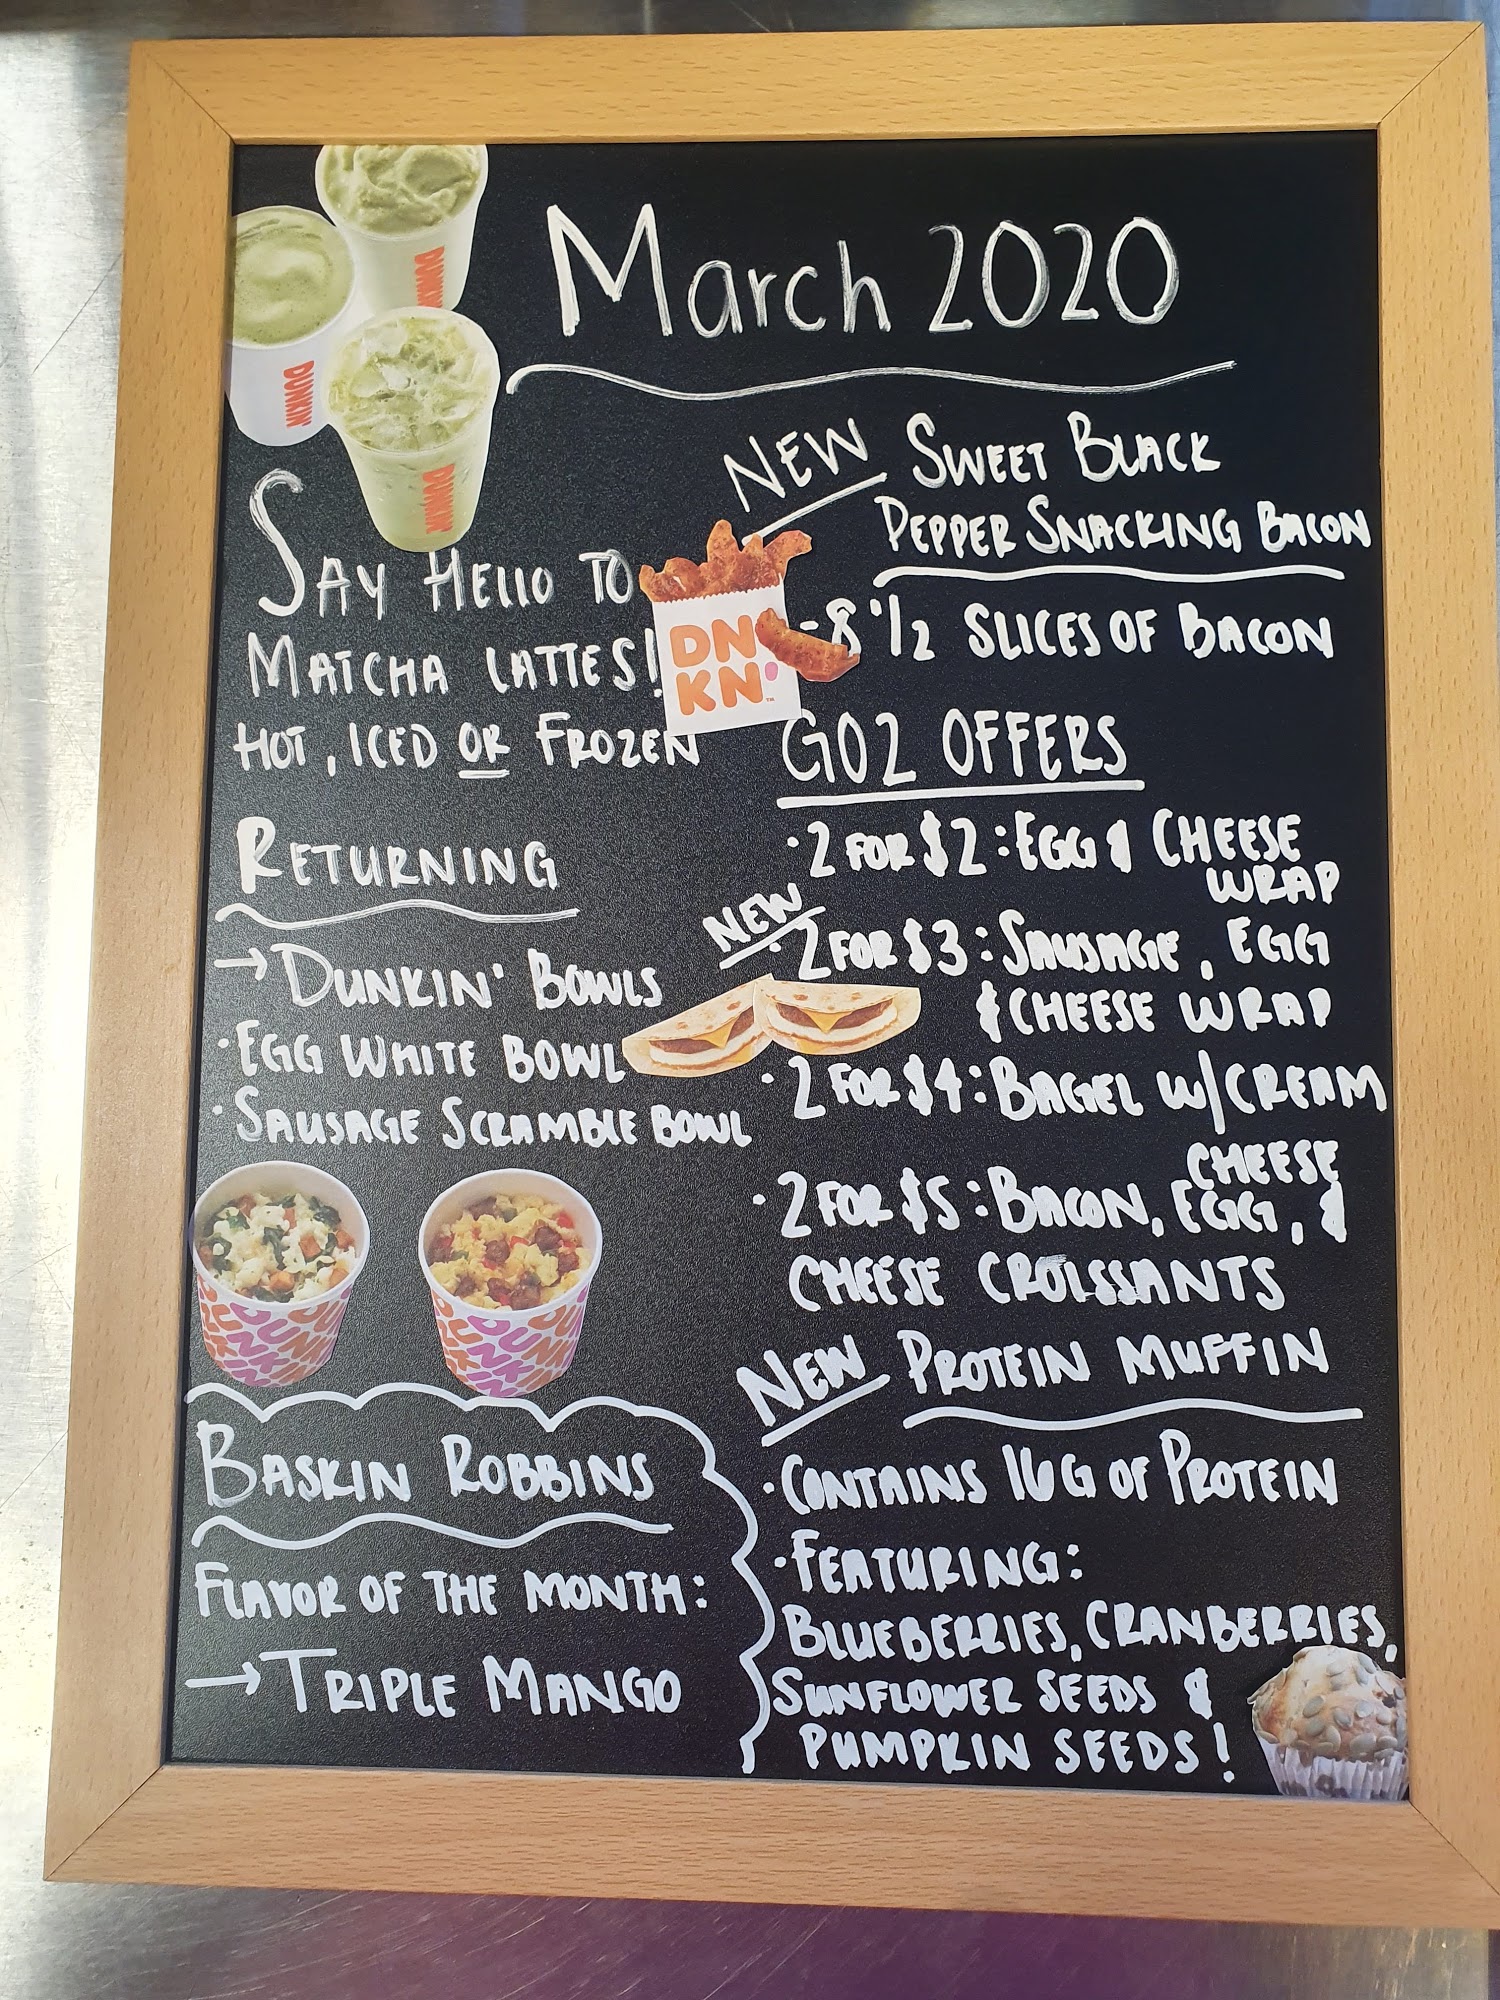 March 2020
DUNKIN'
DUNKIN'
DUNKIN'
SAY HELLO TO
MATCHA LATTES!
HOT, ICED OR FROZEN
RETURNING
→ DUNKIN' BOWLS
· EGG WHITE BOWL
· SAUSAGE SCRAMBLE BOWL
BASKIN ROBBINS
FLAVOR OF THE MONTH:
→ TRIPLE MANGO
NEW SWEET BLACK
PEPPER SNACKING BACON
DN
KN'
- 8 1/2 SLICES OF BACON
GO2 OFFERS
· 2 FOR $2: EGG & CHEESE
WRAP
NEW
· 2 FOR $3: SAUSAGE, EGG
& CHEESE WRAP
· 2 FOR $4: BAGEL W/ CREAM
CHEESE
· 2 FOR $5: BACON, EGG, &
CHEESE CROISSANTS
NEW PROTEIN MUFFIN
· CONTAINS 16G OF PROTEIN
· FEATURING:
BLUEBERRIES, CRANBERRIES,
SUNFLOWER SEEDS &
PUMPKIN SEEDS!